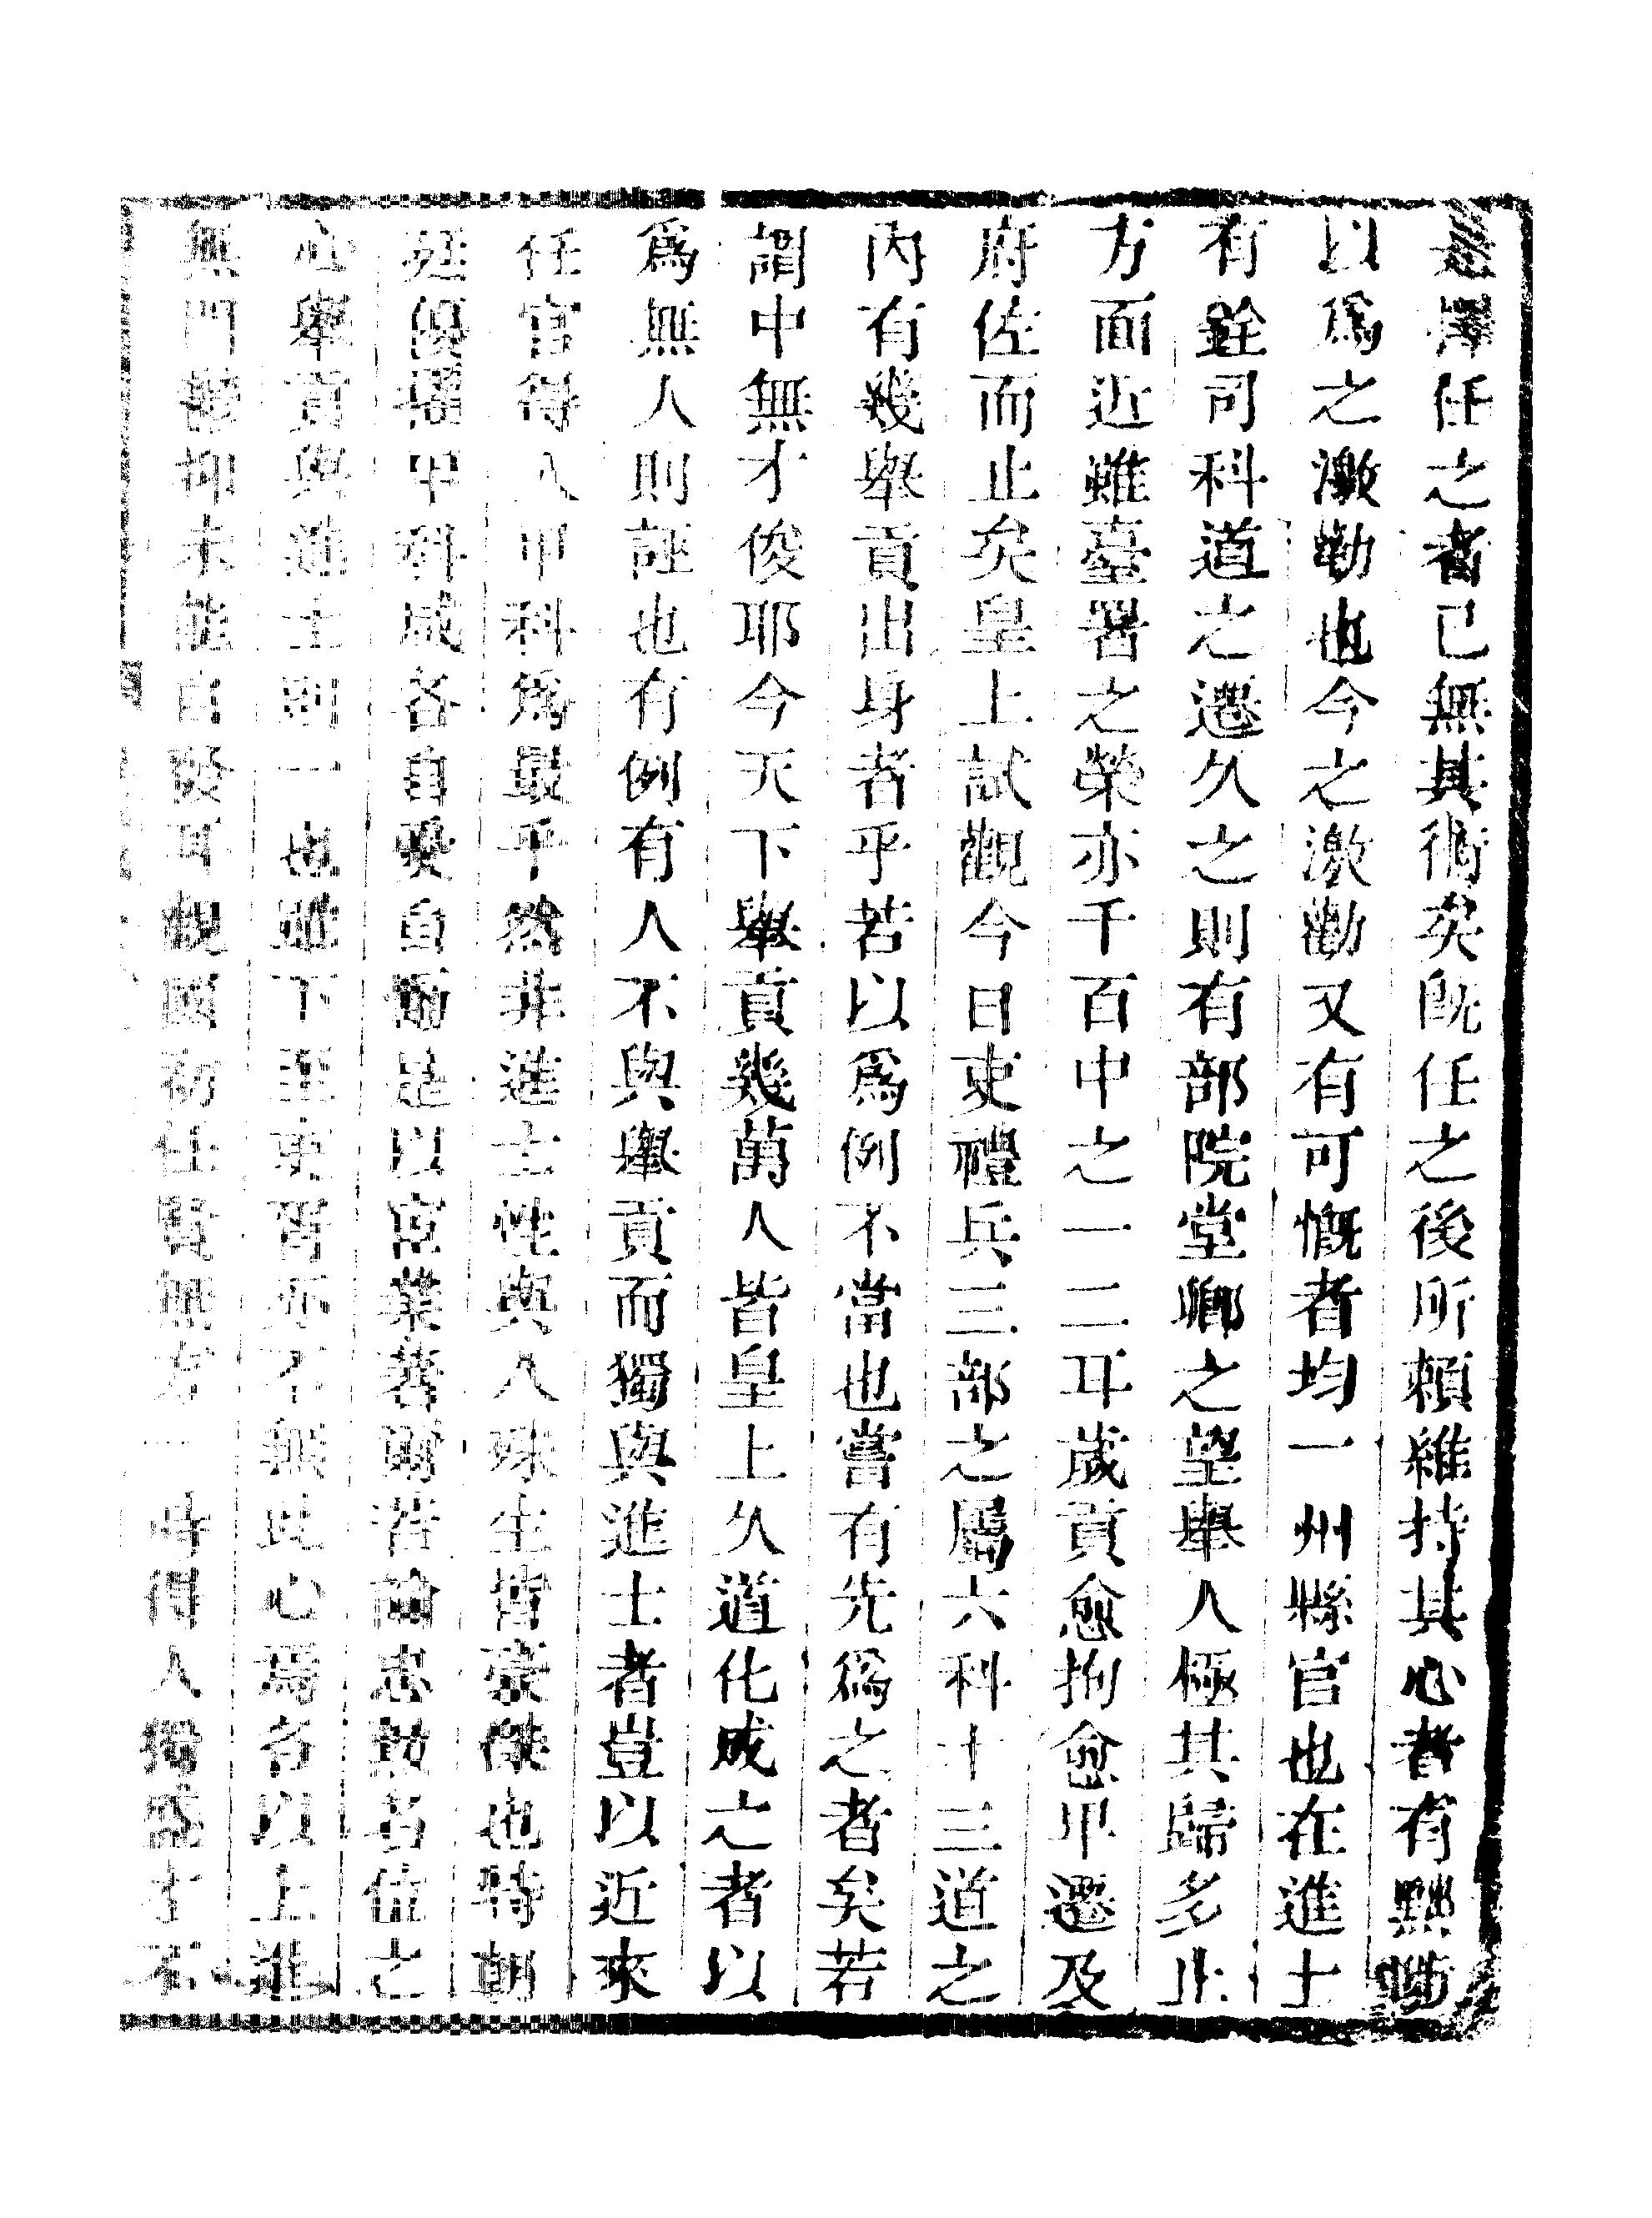 是擇任之者已無其術矣既任之後所賴維持其心者有黜陟
以爲之激勸也今之激勸又有可慨者均一州縣官也在進士
有銓司科道之遷久之則有部院堂卿之望舉人極其歸多止
方面近雖臺署之榮亦千百中之一二耳歲貢愈拘愈卑遷及
府佐而止矣皇上試觀今日吏禮兵三部之屬六科十三道之
內有幾舉貢出身者乎若以爲例不當也嘗有先爲之者矣若
謂中無才俊耶今天下舉貢幾萬人皆皇上久道化成之者以
爲無人則誣也有例有人不與舉貢而獨與進士者豈以近來
任官得人甲科爲最乎然非進士性與人殊生皆豪傑也特朝
廷優擢甲科咸各自愛自勵是以宦業著爾若論忠勤名位之
心舉貢與進士則一也雖下至吏胥亦不無此心焉名以上進
無門鬱抑未能自發耳觀國初任賢無方一時得人獨盛才不